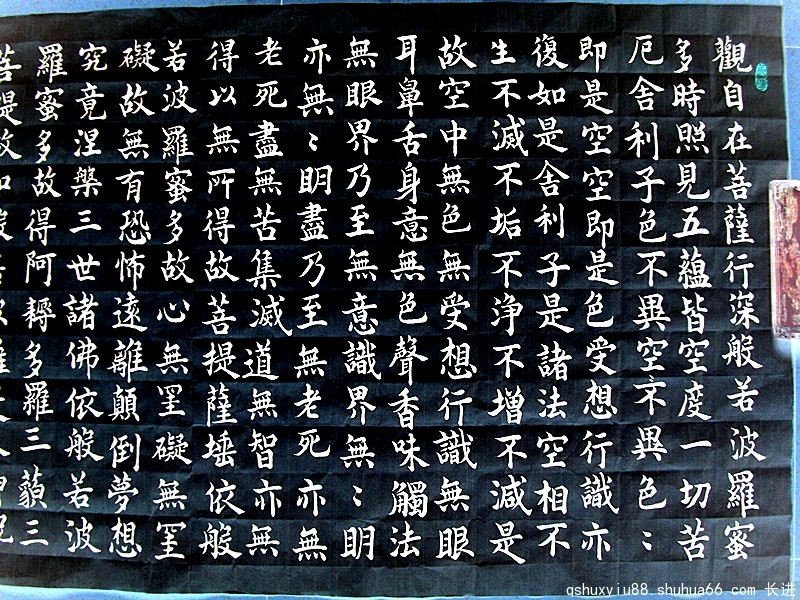 觀自在菩薩行深般若波羅蜜
多時照見五蘊皆空度一切苦
厄舍利子色不異空不異色〻
即是空空即是色受想行識亦
復如是舍利子是諸法空相不
生不滅不垢不浄不增不減是
故空中無色無受想行識無眼
耳鼻舌身意無色聲香味觸法
無眼界乃至無意識界無〻明
亦無〻明盡乃至無老死亦無
老死盡無苦集滅道無智亦無
得以無所得故菩提薩埵依般
若波羅蜜多故心無罣礙無罣
礙故無有恐怖遠離顛倒夢想
究竟涅槃三世諸佛依般若波
羅蜜多故得阿耨多羅三藐三
菩提故
qshuxyiu88.shuhua66.com 长进